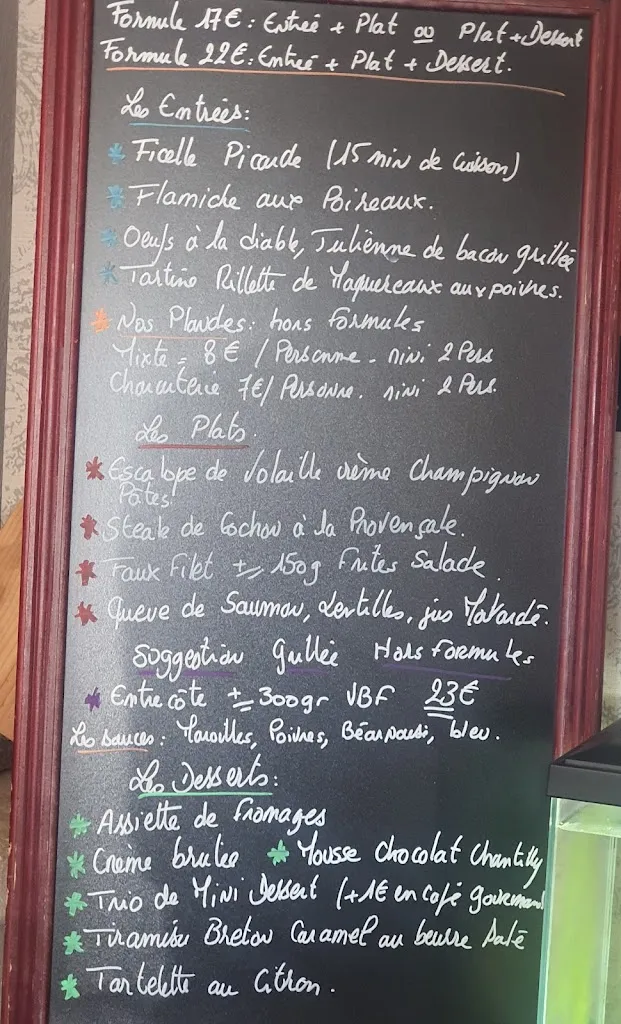 Formule 17€ : Entrée + Plat ou Plat + Dessert
Formule 22€ : Entrée + Plat + Dessert.
Les Entrées :
* Ficelle Picarde (15 min de cuisson)
* Flamiche aux Poireaux.
* Oeufs à la diable, Julienne de bacon grillée
* Tartine Rillette de Maquereaux aux poivres.
* Nos Planches : hors formules
Mixte = 8€ / Personne - mini 2 Pers
Charcuterie 7€/ Personne. mini 2 Pers.
Les Plats.
* Escalope de Volaille crème Champignon
Pâtes.
* Steak de Cochon à la Provençale.
* Faux Filet +- 150g Frites Salade
* Queue de Saumon, Lentilles, jus Moutarde.
Suggestion Grillée Hors formules
* Entrecôte +- 300gr VBF 23€
Les sauces : Maroilles, Poivres, Béarnaise, bleu.
Les Desserts :
* Assiette de fromages
* Crème brulée * Mousse chocolat Chantilly
* Trio de Mini Dessert (+1€ en café gourmand
* Tiramisu Breton Caramel au beurre Salé
* Tartelette au Citron.